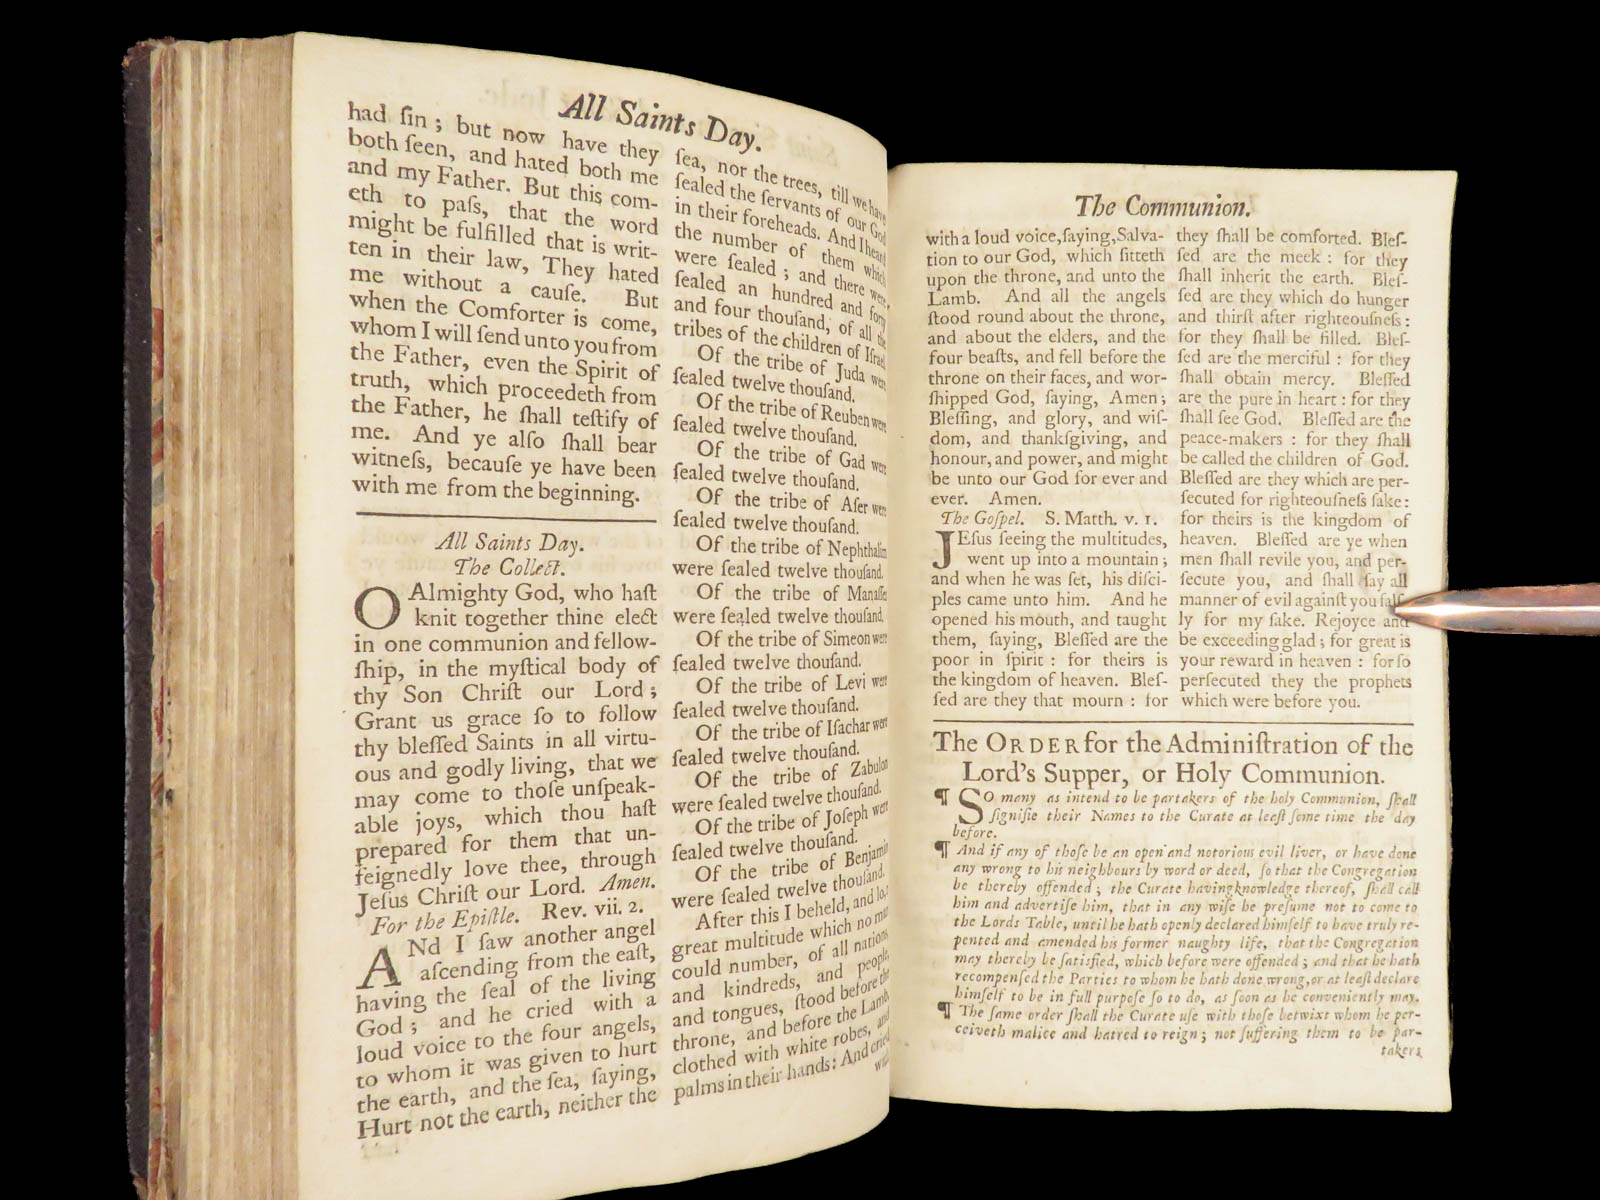 All Saints Day.
had ſin ; but now have they
both ſeen, and hated both me
and my Father. But this com-
eth to paſs, that the word
might be fulfilled that is writ-
ten in their law, They hated
me without a cauſe. But
when the Comforter is come,
whom I will ſend unto you from
the Father, even the Spirit of
truth, which proceedeth from
the Father, he ſhall teſtify of
me. And ye alſo ſhall bear
witneſs, becauſe ye have been
with me from the beginning.
All Saints Day.
The Collect.
O Almighty God, who haſt
knit together thine elect
in one communion and fellow-
ſhip, in the myſtical body of
thy Son Chriſt our Lord ;
Grant us grace ſo to follow
thy bleſſed Saints in all virtu-
ous and godly living, that we
may come to thoſe unſpeak-
able joys, which thou haſt
prepared for them that un-
feignedly love thee, through
Jeſus Chriſt our Lord. Amen.
For the Epiſtle. Rev. vii. 2.
ANd I ſaw another angel
aſcending from the eaſt,
having the ſeal of the living
God ; and he cried with a
loud voice to the four angels,
to whom it was given to hurt
the earth, and the ſea, ſaying,
Hurt not the earth, neither the
ſea, nor the trees, till we have
ſealed the ſervants of our God
in their foreheads. And I heard
the number of them which
were ſealed ; and there were
ſealed an hundred and forty
and four thouſand, of all the
tribes of the children of Iſrael
Of the tribe of Juda were
ſealed twelve thouſand.
Of the tribe of Reuben were
ſealed twelve thouſand.
Of the tribe of Gad were
ſealed twelve thouſand.
Of the tribe of Aſer were
ſealed twelve thouſand.
Of the tribe of Nephthalim
were ſealed twelve thouſand.
Of the tribe of Manaſſes
were ſealed twelve thouſand.
Of the tribe of Simeon were
ſealed twelve thouſand.
Of the tribe of Levi were
ſealed twelve thouſand.
Of the tribe of Iſachar were
ſealed twelve thouſand.
Of the tribe of Zabulon
were ſealed twelve thouſand.
Of the tribe of Joſeph were
ſealed twelve thouſand.
Of the tribe of Benjamin
were ſealed twelve thouſand.
After this I beheld, and lo, a
great multitude which no man
could number, of all nations
and kindreds, and people,
and tongues, ſtood before the
throne, and before the Lamb,
clothed with white robes, and
palms in their hands : And cried
with
The Communion.
with a loud voice, ſaying, Salva-
tion to our God, which ſitteth
upon the throne, and unto the
Lamb. And all the angels
ſtood round about the throne,
and about the elders, and the
four beaſts, and fell before the
throne on their faces, and wor-
ſhipped God, ſaying, Amen ;
Bleſſing, and glory, and wiſ-
dom, and thankſgiving, and
honour, and power, and might
be unto our God for ever and
ever. Amen.
The Goſpel. S. Matth. v. 1.
JEſus ſeeing the multitudes,
went up into a mountain ;
and when he was ſet, his diſci-
ples came unto him. And he
opened his mouth, and taught
them, ſaying, Bleſſed are the
poor in ſpirit : for theirs is
the kingdom of heaven. Bleſ-
ſed are they that mourn : for
they ſhall be comforted. Bleſ-
ſed are the meek : for they
ſhall inherit the earth. Bleſ-
ſed are they which do hunger
and thirſt after righteouſneſs :
for they ſhall be filled. Bleſ-
ſed are the merciful : for they
ſhall obtain mercy. Bleſſed
are the pure in heart : for they
ſhall ſee God. Bleſſed are the
peace-makers : for they ſhall
be called the children of God.
Bleſſed are they which are per-
ſecuted for righteouſneſs ſake :
for theirs is the kingdom of
heaven. Bleſſed are ye when
men ſhall revile you, and per-
ſecute you, and ſhall ſay all
manner of evil againſt you falſ-
ly for my ſake. Rejoyce and
be exceeding glad ; for great is
your reward in heaven : for ſo
perſecuted they the prophets
which were before you.
The ORDER for the Adminiſtration of the
Lord's Supper, or Holy Communion.
¶ SO many as intend to be partakers of the holy Communion, ſhall
ſignifie their Names to the Curate at leaſt ſome time the day
before.
¶ And if any of thoſe be an open and notorious evil liver, or have done
any wrong to his neighbours by word or deed, ſo that the Congregation
be thereby offended ; the Curate having knowledge thereof, ſhall call
him and advertiſe him, that in any wiſe he preſume not to come to
the Lords Table, until he hath openly declared himſelf to have truly re-
pented and amended his former naughty life, that the Congregation
may thereby be ſatisfied, which before were offended ; and that he hath
recompenſed the Parties to whom he hath done wrong, or at leaſt declare
himſelf to be in full purpoſe ſo to do, as ſoon as he conveniently may.
¶ The ſame order ſhall the Curate uſe with thoſe betwixt whom he per-
ceiveth malice and hatred to reign ; not ſuffering them to be par-
takers